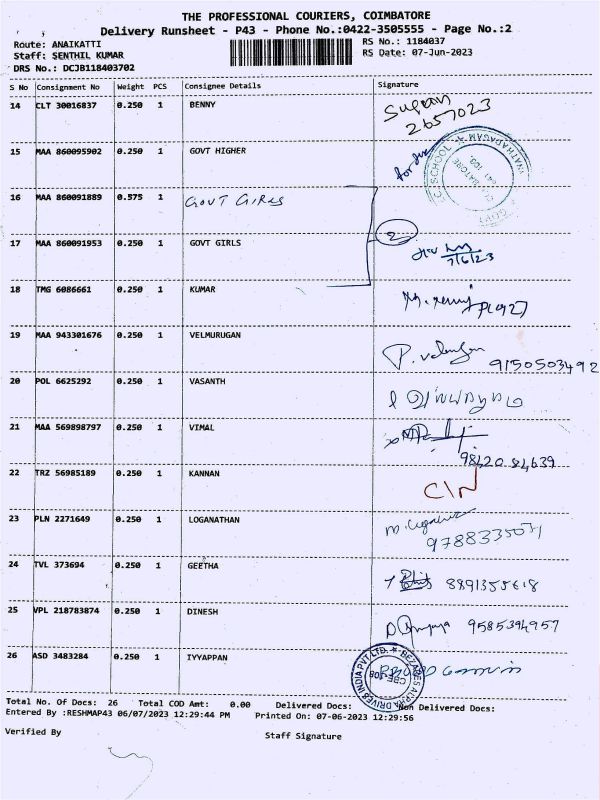 THE PROFESSIONAL COURIERS, COIMBATORE
Delivery Runsheet - P43 - Phone No.:0422-3505555 - Page No.:2
Route: ANAIKATTI
RS No.: 1184037
Staff: SENTHIL KUMAR
RS Date: 07-Jun-2023
DRS No.: DCJB118403702
S No Consignment No Weight PCS Consignee Details Signature
14 CLT 30016837 0.250 1 BENNY
2657023
15 MAA 860095902 0.250 1 GOVT HIGHER
16 MAA 860091889 0.575 1 GOVT GIRLS
17 MAA 860091953 0.250 1 GOVT GIRLS 2
7/6/23
18 TMG 6086661 0.250 1 KUMAR
19 MAA 943301676 0.250 1 VELMURUGAN
9150503492
20 POL 6625292 0.250 1 VASANTH
21 MAA 569898797 0.250 1 VIMAL
98420 84639
22 TRZ 56985189 0.250 1 KANNAN C/N
23 PLN 2271649 0.250 1 LOGANATHAN
9788335031
24 TVL 373694 0.250 1 GEETHA 8891355618
25 VPL 218783874 0.250 1 DINESH 9585394957
26 ASD 3483284 0.250 1 IYYAPPAN
Total No. Of Docs: 26 Total COD Amt: 0.00 Delivered Docs: Non Delivered Docs:
Entered By :RESHMAP43 06/07/2023 12:29:44 PM Printed On: 07-06-2023 12:29:56
Verified By
Staff Signature